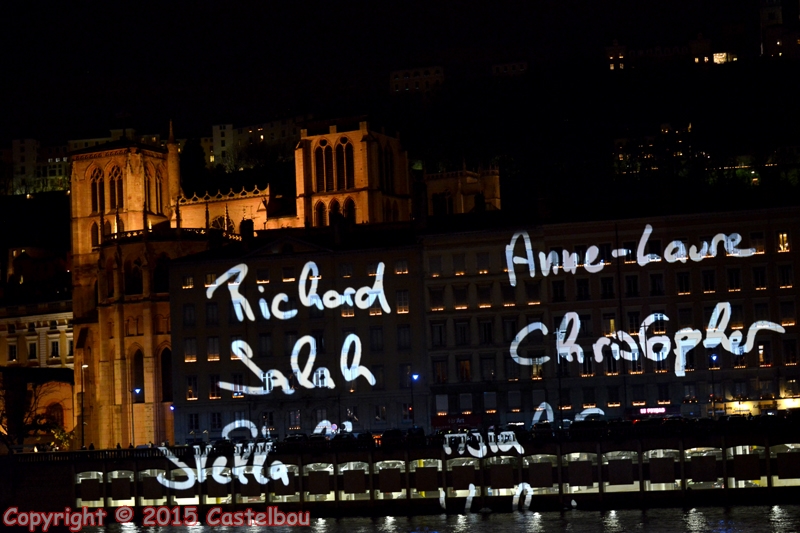 Anne-Laure
Richard
Christopher
Salah
Stella
Copyright © 2015 Castelbou